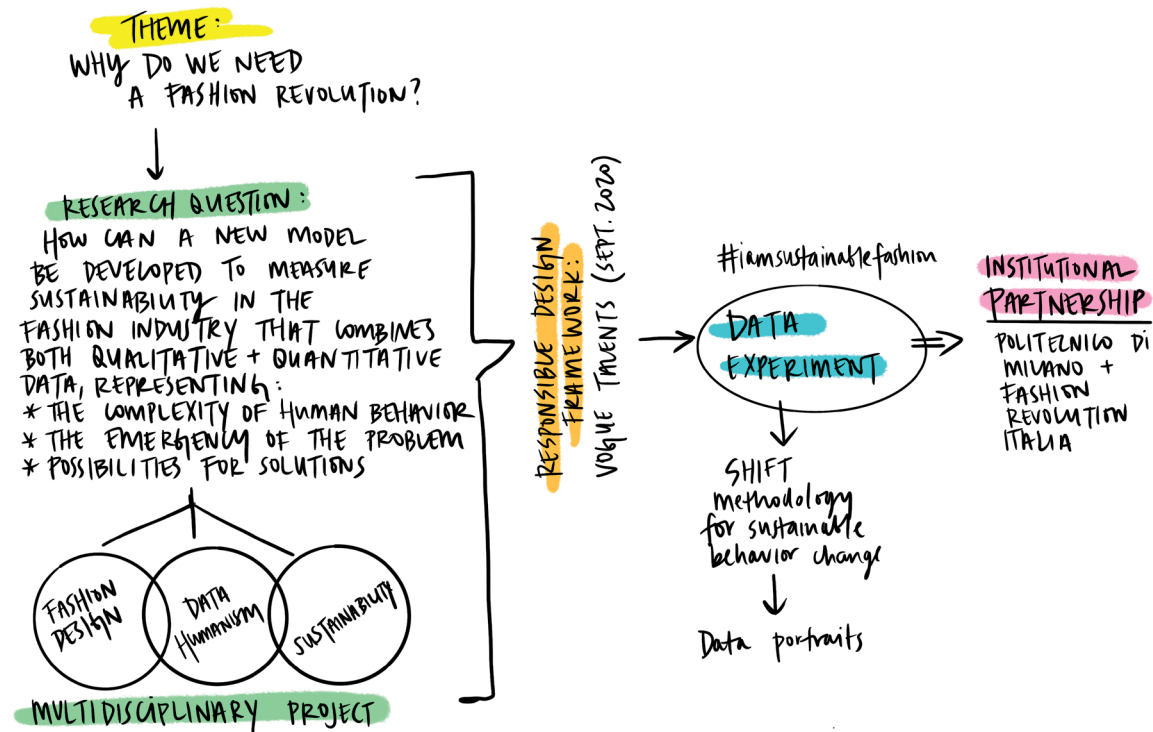 THEME:
WHY DO WE NEED
A FASHION REVOLUTION?
RESEARCH QUESTION:
HOW CAN A NEW MODEL
BE DEVELOPED TO MEASURE
SUSTAINABILITY IN THE
FASHION INDUSTRY THAT COMBINES
BOTH QUALITATIVE + QUANTITATIVE
DATA, REPRESENTING:
* THE COMPLEXITY OF HUMAN BEHAVIOR
* THE EMERGENCY OF THE PROBLEM
* POSSIBILITIES FOR SOLUTIONS
FASHION
DESIGN
DATA
HUMANISM
SUSTAINABILITY
MULTIDISCIPLINARY PROJECT
RESPONSIBLE DESIGN
FRAMEWORK:
VOGUE TALENTS (SEPT. 2020)
#iamsustainablefashion
DATA
EXPERIMENT
SHIFT
methodology
for sustainable
behavior change
Data portraits
INSTITUTIONAL
PARTNERSHIP
POLITECNICO DI
MILANO +
FASHION
REVOLUTION
ITALIA